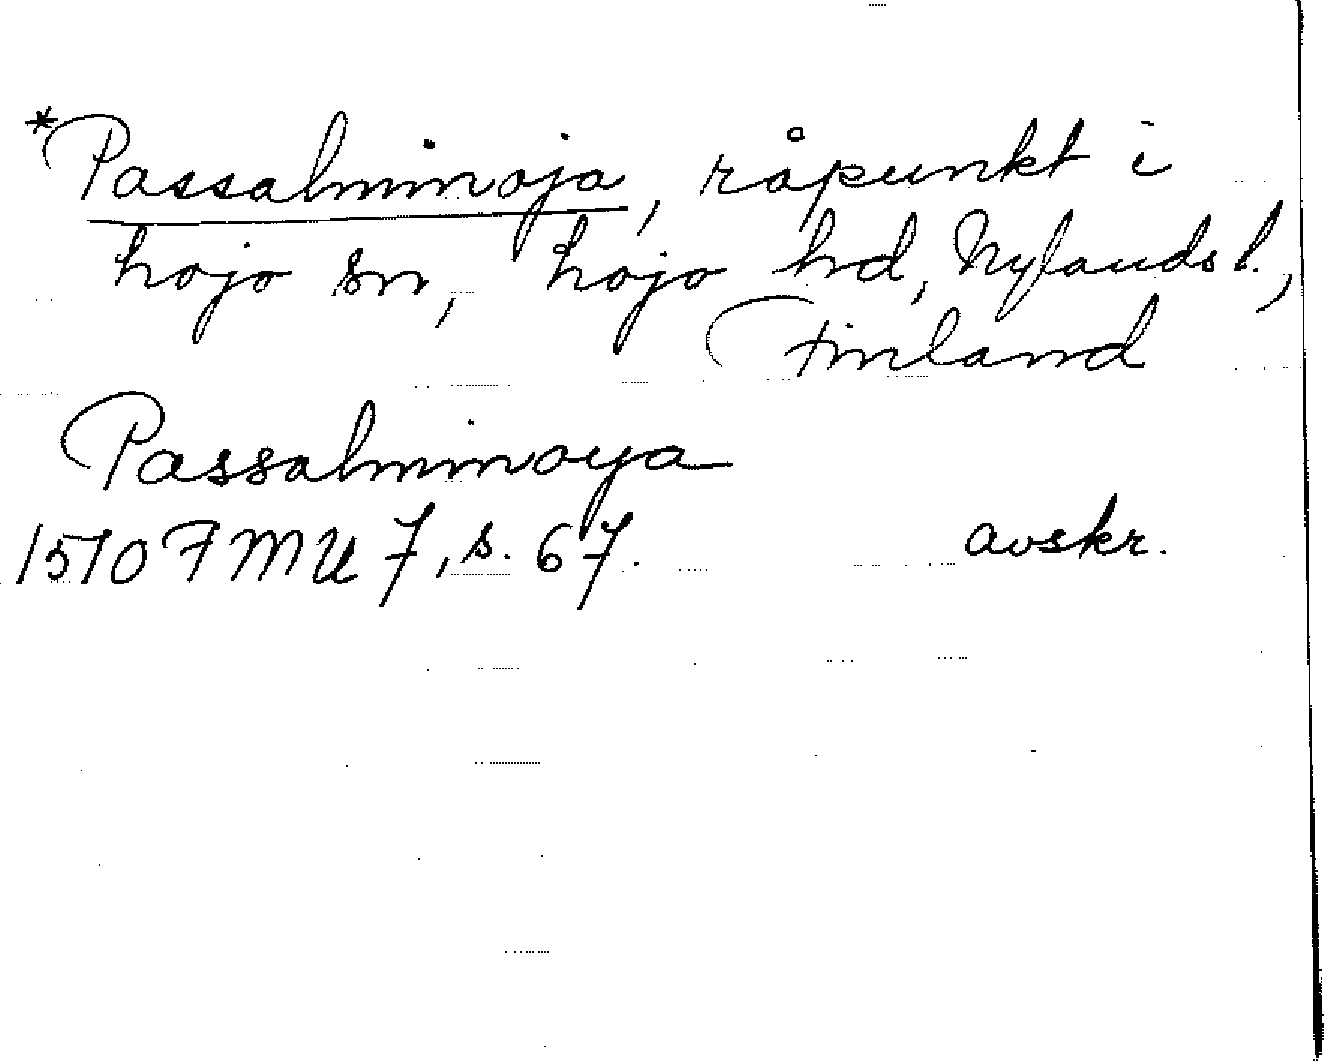 *Passalminoja, råpunkt i
Lojo sn, Lojo hd, Nylands l.,
Finland
Passalminoya
1510 FMU 7, s. 67. avskr.